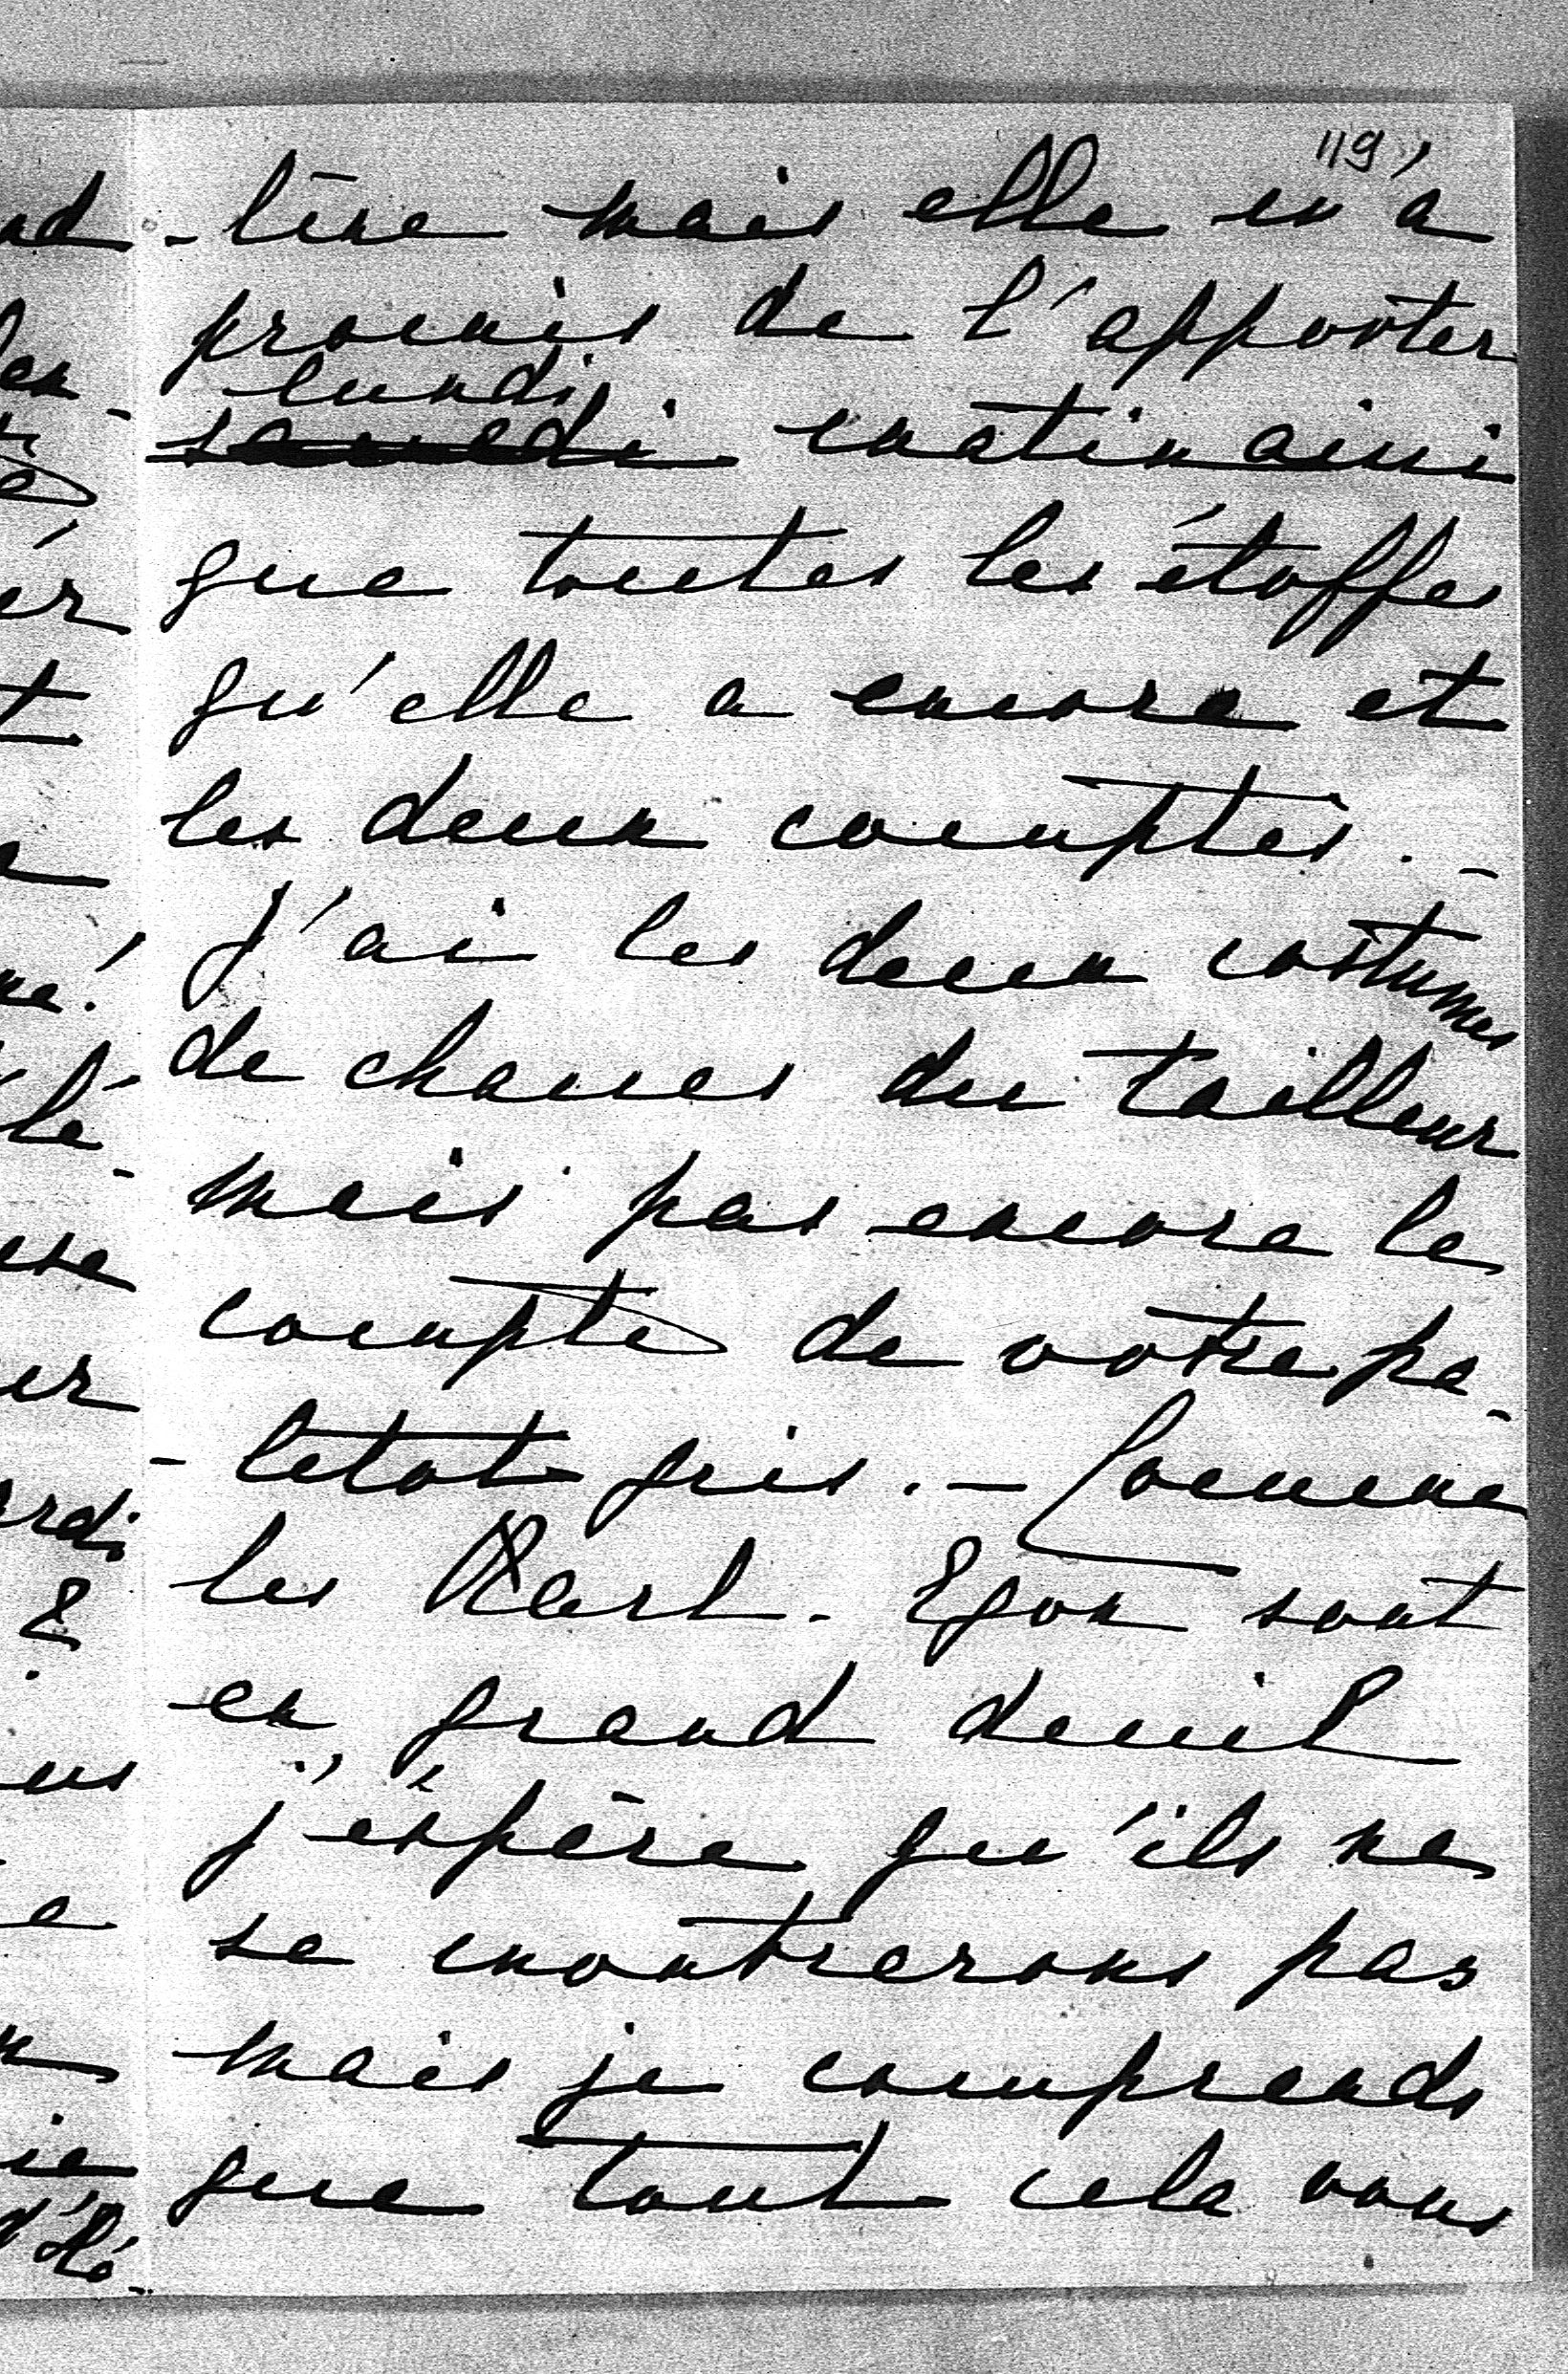 119
-tère mais elle m'a
promis de l'apporter
lundi
samedi matin ainsi
que toutes les étoffes
qu'elle a encore et
les deux comptes. -
J'ai les deux costumes
de chasses du tailleur
mais pas encore le
compte de votre pa-
-letot gris. - Comme
les Karl-Egon sont
en grand deuil
j'espère qu'ils ne
se montrerons pas
mais je comprends
que tout cela vous